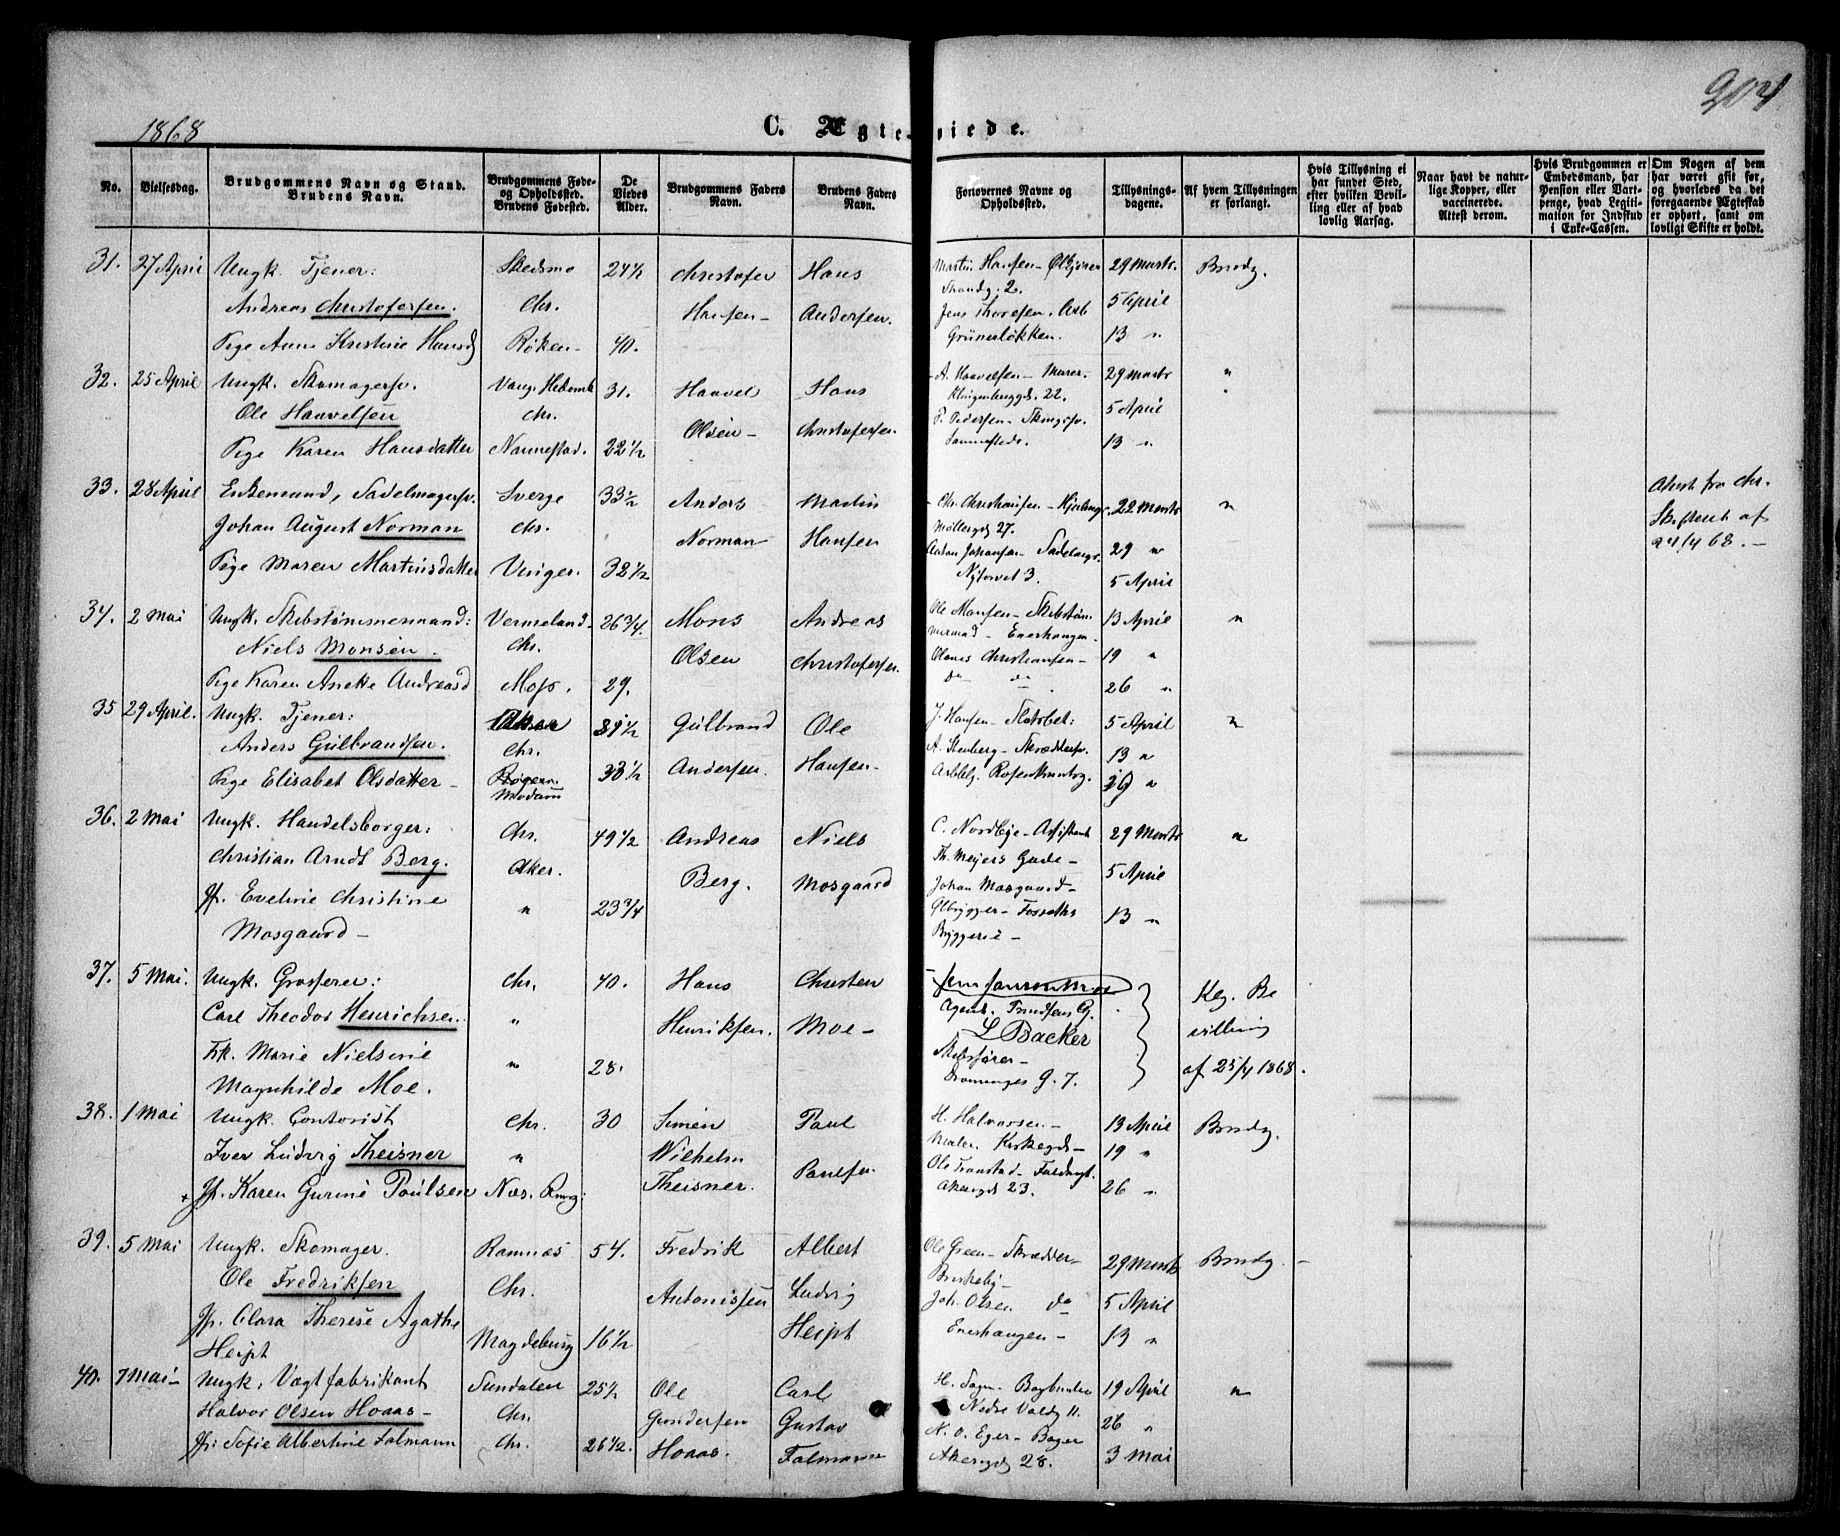 1868
C. Ægteviede.
No.
Vielsesdag.
Brudgommens Navn og Stand.
Brudens Navn.
Brudgommens Føde-
og Opholdssted.
Brudens Fødested.
De
Viedes
Alder.
Brudgommens Faders
Navn.
Brudens Faders
Navn.
Forlovernes Navne og
Opholdssted.
Tillysnings-
dagene.
Af hvem Tillysningen
er forlangt.
Hvis Tillysning ei
har fundet Sted,
efter hvilken Bevil-
ling eller af hvad
lovlig Aarsag.
Naar havt de natur-
lige Kopper, eller
vaccinerede.
Attest derom.
Hvis Brudgommen er
Embedsmand, har
Pension eller Vart-
penge, hvad Legiti-
mation for Indskud
i Enke-Cassen.
Om Nogen af dem
har været gift før,
og hvorledes da det
foregaaende Ægteskab
er ophørt, samt om
lovligt Skifte er holdt.
31. 27 April Ungk. Tjener: Skedsmo 24½ Christofer Hans Martin Hansen 29 Marts. Brudg.
Andreas Christofersen. Chr. Hansen- Andersen. Strandg. 2. 5 April
Pige Anne Kristine Hansd Røken- 40. Grünerløkken. 13 "
32. 25 April Ungk. Skomagersv. Vang. Hedemk 31. Haavel Hans A. Haavelsen- Murer. 29 Marts "
Ole Haavelsen Chr. Olsen- Christofersen Klingenberggd. 22. 5 April
Pige Karen Hansdatter Nannestad. 22½ 13 "
33. 28 April Enkemand, Sadelmagersv. Sverge 33½ Anders Martin 22 Marts "
Johan August Norman Chr. Norman Hansen Møllergd 27. Attest fra Chr.
Pige Maren Martinsdatter Vinger. 32½ Anton Johansen- 29 " Skifteret af
Nytorvet 3. 5 April 24/4 68.-
34. 2 Mai Ungk. Skibstømmermand: Vermeland- 26¾. Mons Andreas Ole Monsen- Skibstøm- 13 April "
Niels Monsen. Chr. Olsen Christofersen. mermand- Enerhaugen-
Pige Karen Anette Andreasd Moss. 29. Olaves Christiansen- 19 "
do do 26 "
35 29 April. Ungk. Tjener: Aker 31½ Gulbrand Ole J. Hansen- Slotsbet: 5 April "
Anders Gulbrandsen. Chr. Andersen. Hansen- A. Stenberg- Skræddersv. 13 "
Pige Elisabet Olsdatter- Modum 33½ 19 "
36. 2 Mai Ungk. Handelsborger: Chr. 49½ Andreas Niels 29 Marts "
Christian Arndt Berg. Aker. Berg. Mosgaard Th. Meyers Gade- 5 April
Jfr. Eveline Christine " 23¾ Johan Mosgaard-
Mosgaard- Ølbrygger- 13 "
Bryggerie-
37. 5 Mai. Ungk. Grosserer: Chr. 40. Hans Christen Kgl. Be
Carl Theodor Henrichsen. " Henriksen. Moe- L Backer villing
Frk. Marie Nielsine " 28. Skibsfører- af 25/4 1868.
Magnhilde Moe. Dronningens G. 7.
38. 1 Mai Ungk. Contorist Chr. 30 Simen Paul H. Halvorsen- 13 April Brudg.
Iver Ludvig Theisner " Wilhelm Paulsen 19 "
+ Jfr. Karen Gurine Poulsen Næs. Rmg: Theisner. Akersgd 23. 26 "
39. 5 Mai Ungk. Skomager. Ramnæs 54. Fredrik Albert Ole Green- Skrædder- 29 Marts Brudg.
Ole Fredriksen Chr. Antonissen Ludvig Briskeby-
Jfr. Clara Therese Agathe Magdeburg 16½ Heipt Joh. Olsen do 5 April
Heipt Enerhaugen- 13 "
40. 7 Mai- Ungk. Vægtfabrikant Sundalen 25½ Ole Carl 19 April "
Halvor Olsen Hoaas- Chr. Gundersen Gustav Nedre Voldg 11. 26 "
Jfr: Sofie Albertine Falmann Chr. 26½. Hoaas. Falmann Akersgd 28. 3 Mai